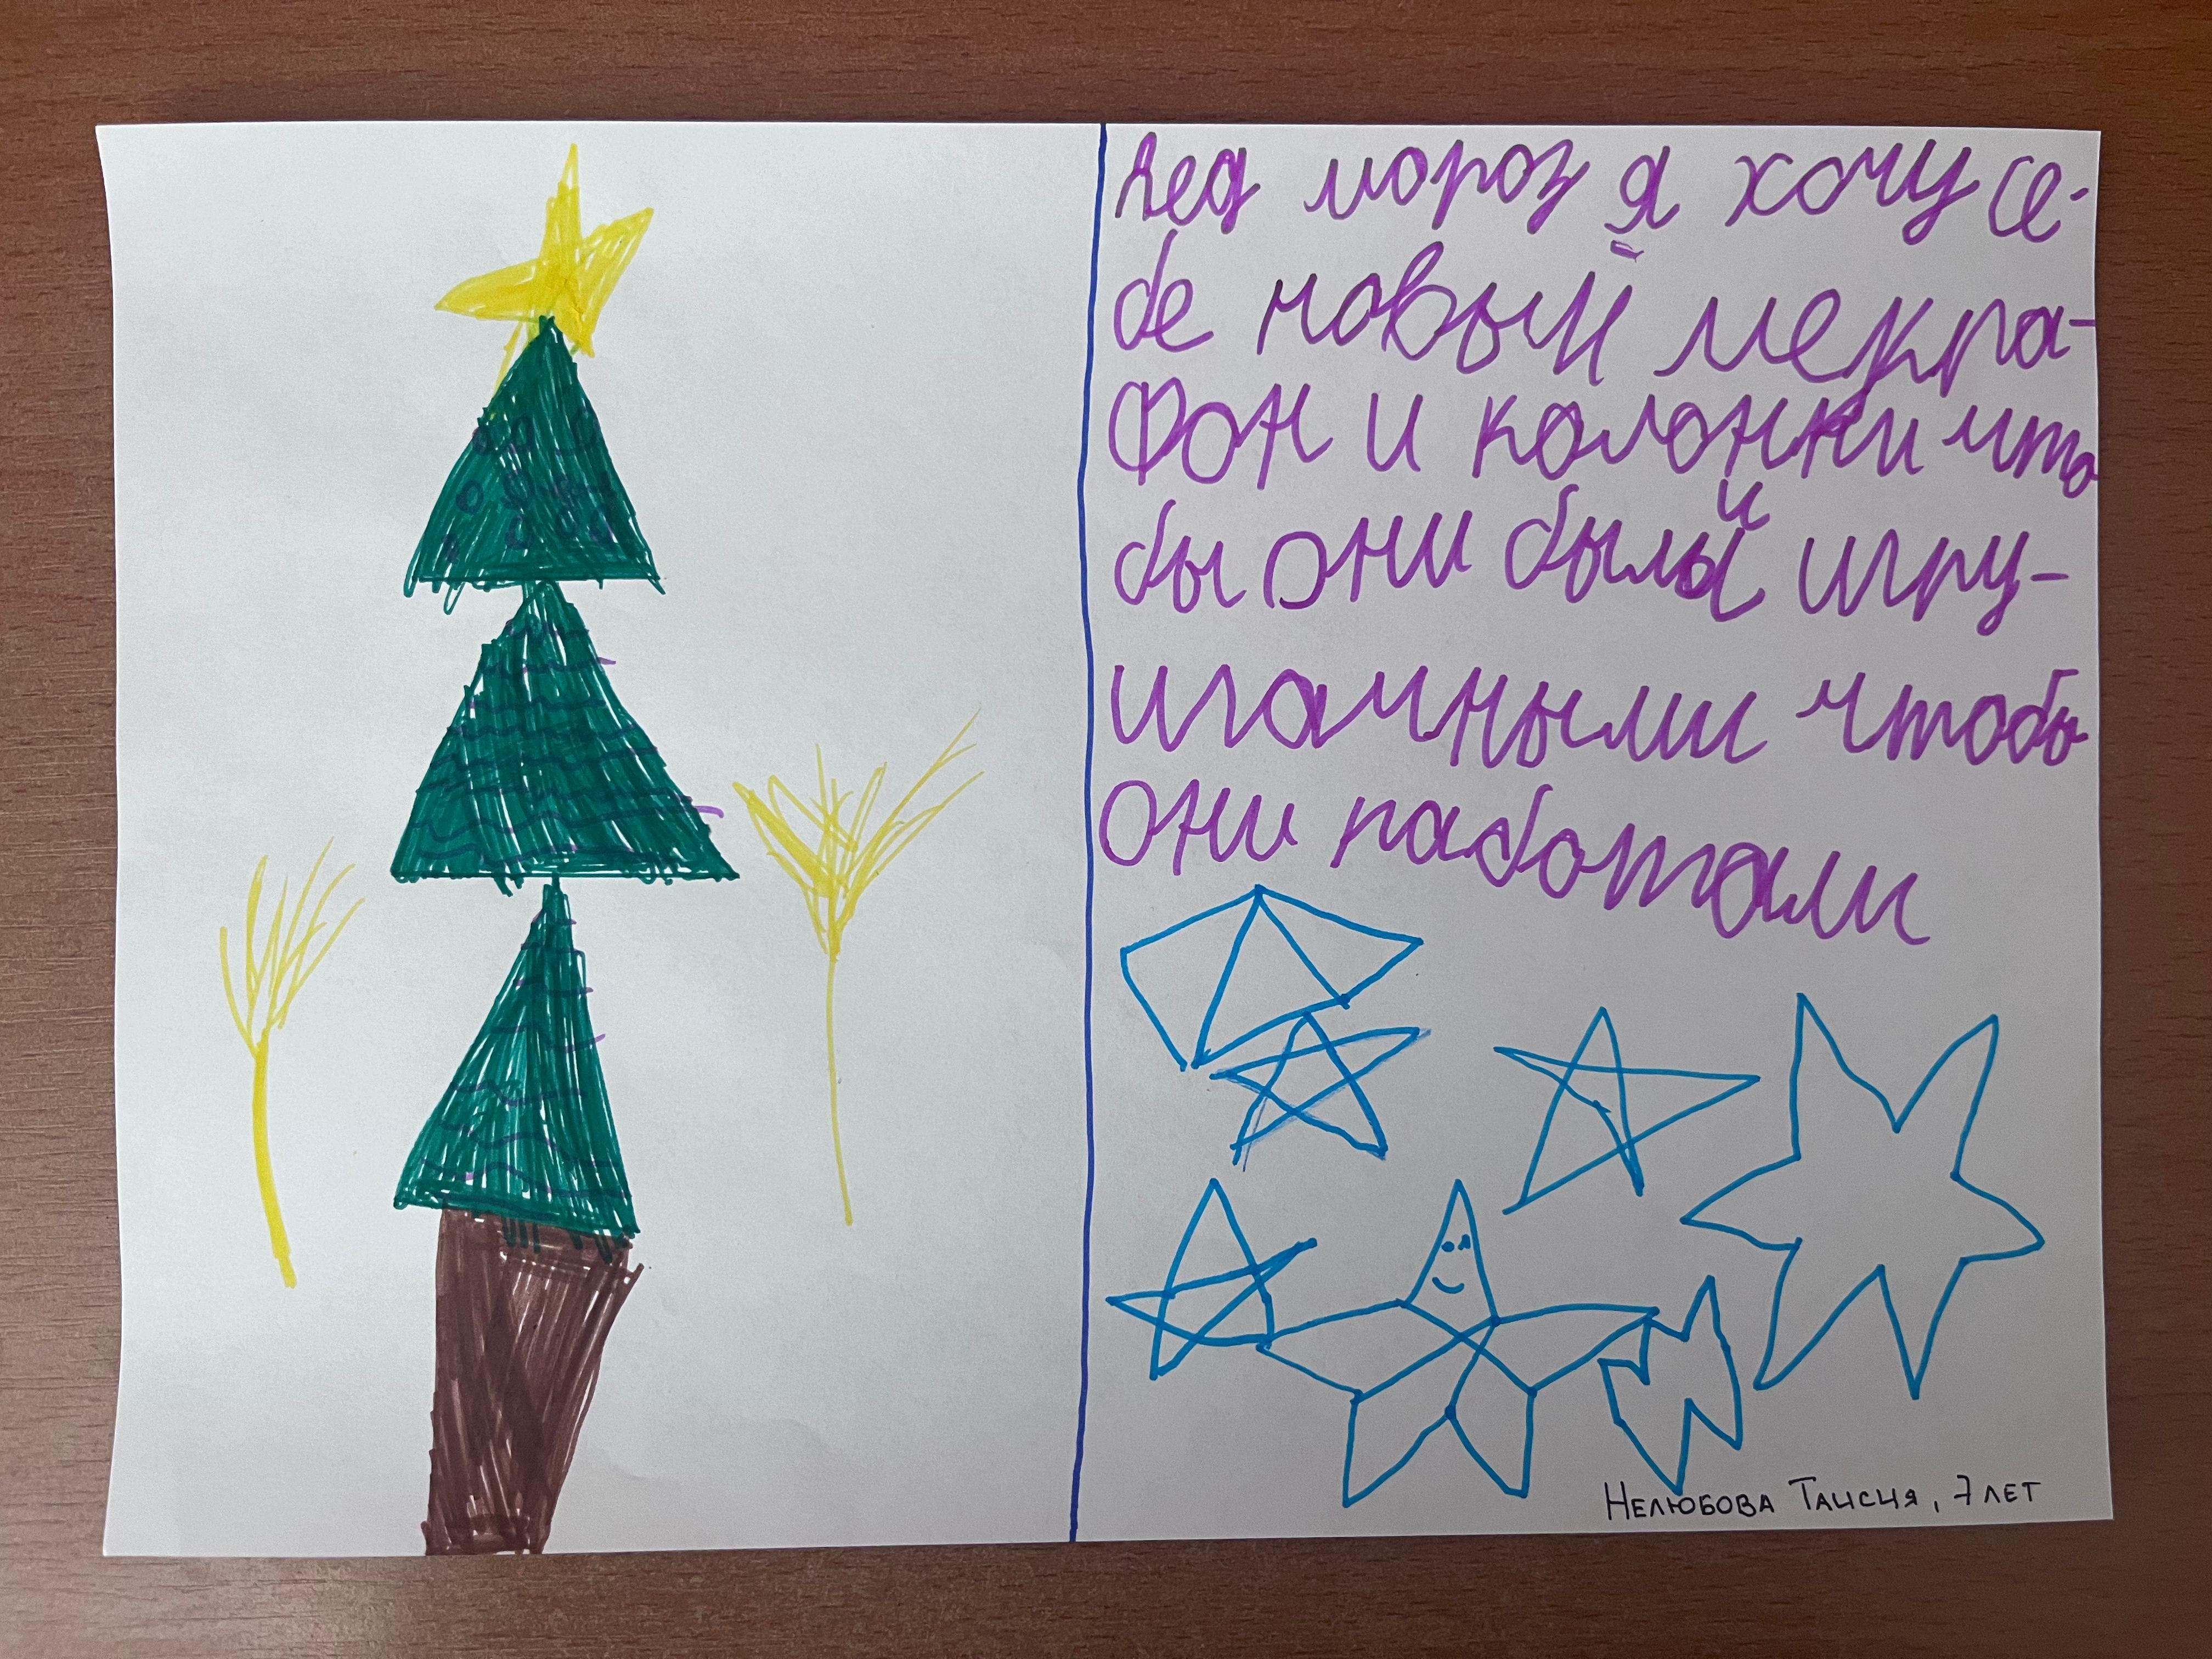 Дед мороз я хочу се-
бе новый мекра-
фон и колонки что
бы они были игру-
шачными чтобы
они работали
Нелюбова Таисия, 7 лет